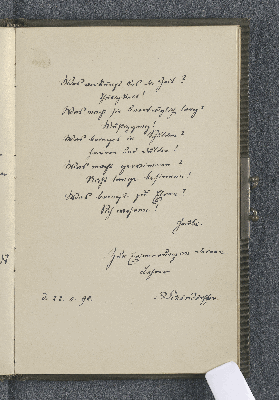 Was verkürzt dir die Zeit?
Thätigkeit!
Was macht sie unerträglich lang?
Müßiggang!
Was bringt in Schulden?
Harren und Dulden!
Was macht gewinnen?
Nicht lange besinnen!
Was bringt zu Ehren?
Sich wehren!
Goethe.
Zur Erinnerung an
Lehrer
d. 22.